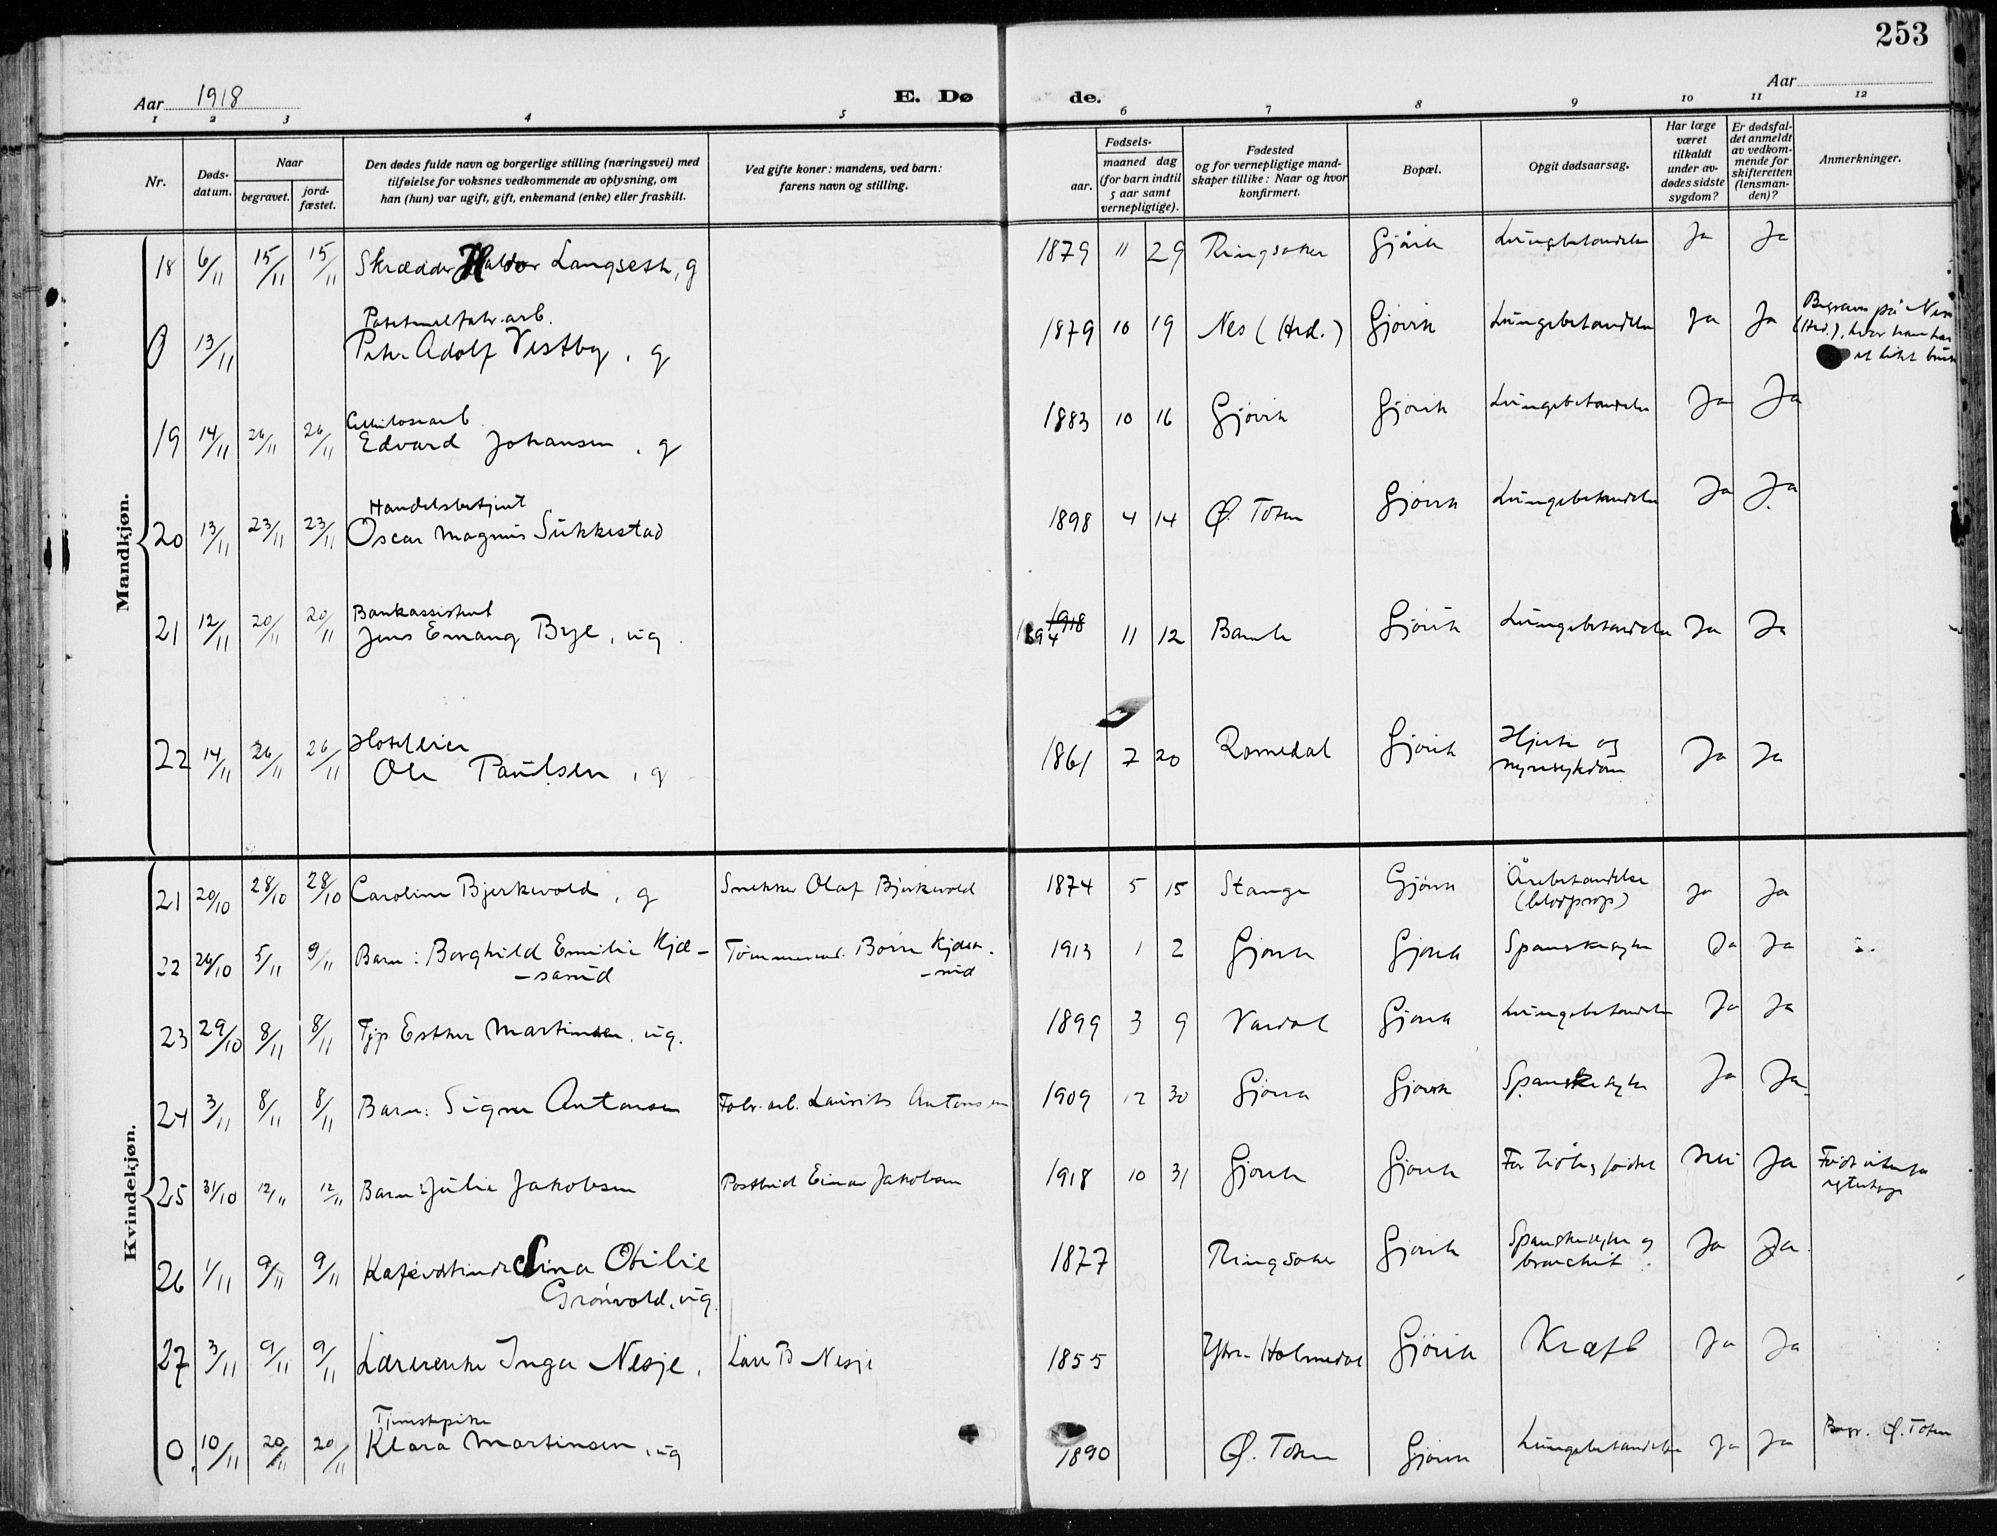 253
Aar 1918
E. Dø de.
Aar
1 2 3 4 5 6 7 8 9 10 11 12
Nr.
Døds-
datum.
Naar
begravet.
jord-
fæstet.
Den dødes fulde navn og borgerlige stilling (næringsvei) med
tilføielse for voksnes vedkommende av oplysning, om
han (hun) var ugift, gift, enkemand (enke) eller fraskilt.
Ved gifte koner: mandens, ved barn:
farens navn og stilling.
Fødsels-
aar.
maaned dag
(for barn indtil
5 aar samt
vernepligtige).
Fødested
og for vernepligtige mand-
skaper tillike: Naar og hvor
konfirmert.
Bopæl.
Opgit dødsaarsag.
Har læge
været
tilkaldt
under av-
dødes sidste
sygdom?
Er dødsfal-
det anmeldt
av vedkom-
mende for
skifteretten
(lensman-
den)?
Anmerkninger.
Mandkjøn.
18 6/11 15/11 15/11 Skrædder Haldor Langseth, g 1879 11 29 Ringsaker Gjøvik Lungebetændelse Ja Ja
0 13/11 Peter Adolf Vestby, g 1879 10 19 Nes (Hed.) Gjøvik Lungebetændelse Ja Ja
19 14/11 26/11 26/11 Cellulosearb.
Edvard Johansen, g 1883 10 16 Gjøvik Gjøvik Lungebetændelse Ja Ja
20 13/11 23/11 23/11 Handelsbetjent
Oscar Magnus Sukkestad 1898 4 14 Ø. Toten Gjøvik Lungebetændelse Ja Ja
21 12/11 20/11 20/11 Bankassistent
Jens Emang Bye, ug. 1918 1894 11 12 Bamle Gjøvik Lungebetændelse Ja Ja
22 14/11 26/11 26/11 Hotelleier
Ole Paulsen, g 1861 7 20 Romedal Gjøvik Hjerte og
nyresykdom Ja Ja
Kvindekjøn.
21 20/10 28/10 28/10 Caroline Bjerkevold, g Snekker Olaf Bjerkevold 1874 5 15 Stange Gjøvik Årebetændelse
(blodprop) Ja Ja
22 26/10 5/11 9/11 Barn: Borghild Emilie Kjæ-
-sarud 1913 1 2 Gjøvik Gjøvik Spanskesyke Ja Ja
23 29/10 8/11 8/11 Tjp Esther Martinsen, ug. 1899 3 9 Vardal Gjøvik Lungebetændelse Ja Ja
24 3/11 8/11 8/11 Barn: Signe Antonsen Fabr. arb. Laurits Antonsen 1909 12 30 Gjøvik Gjøvik Spanskesyke Ja Ja
25 31/10 12/11 12/11 Barn: Julie Jakobsen Postbud Einar Jakobsen 1918 10 31 Gjøvik Gjøvik For tidlig født Nei Ja Født utenfor
egteskap
26 1/11 9/11 9/11 Kafévertinde Lina Otilie
Grønvold, ug. 1877 Ringsaker Gjøvik Spanskesyke og
bronchit. Ja Ja
27 3/11 9/11 9/11 Lærerenke Inga Nesje. Lars B Nesje 1855 Ytre-Holmedal Gjøvik Kræft Ja Ja
0 10/11 20/11 20/11 Tjenestepike
Klara Martinsen, ug 1890 Ø. Toten Gjøvik Lungebetændelse Ja Ja Begr. Ø. Toten